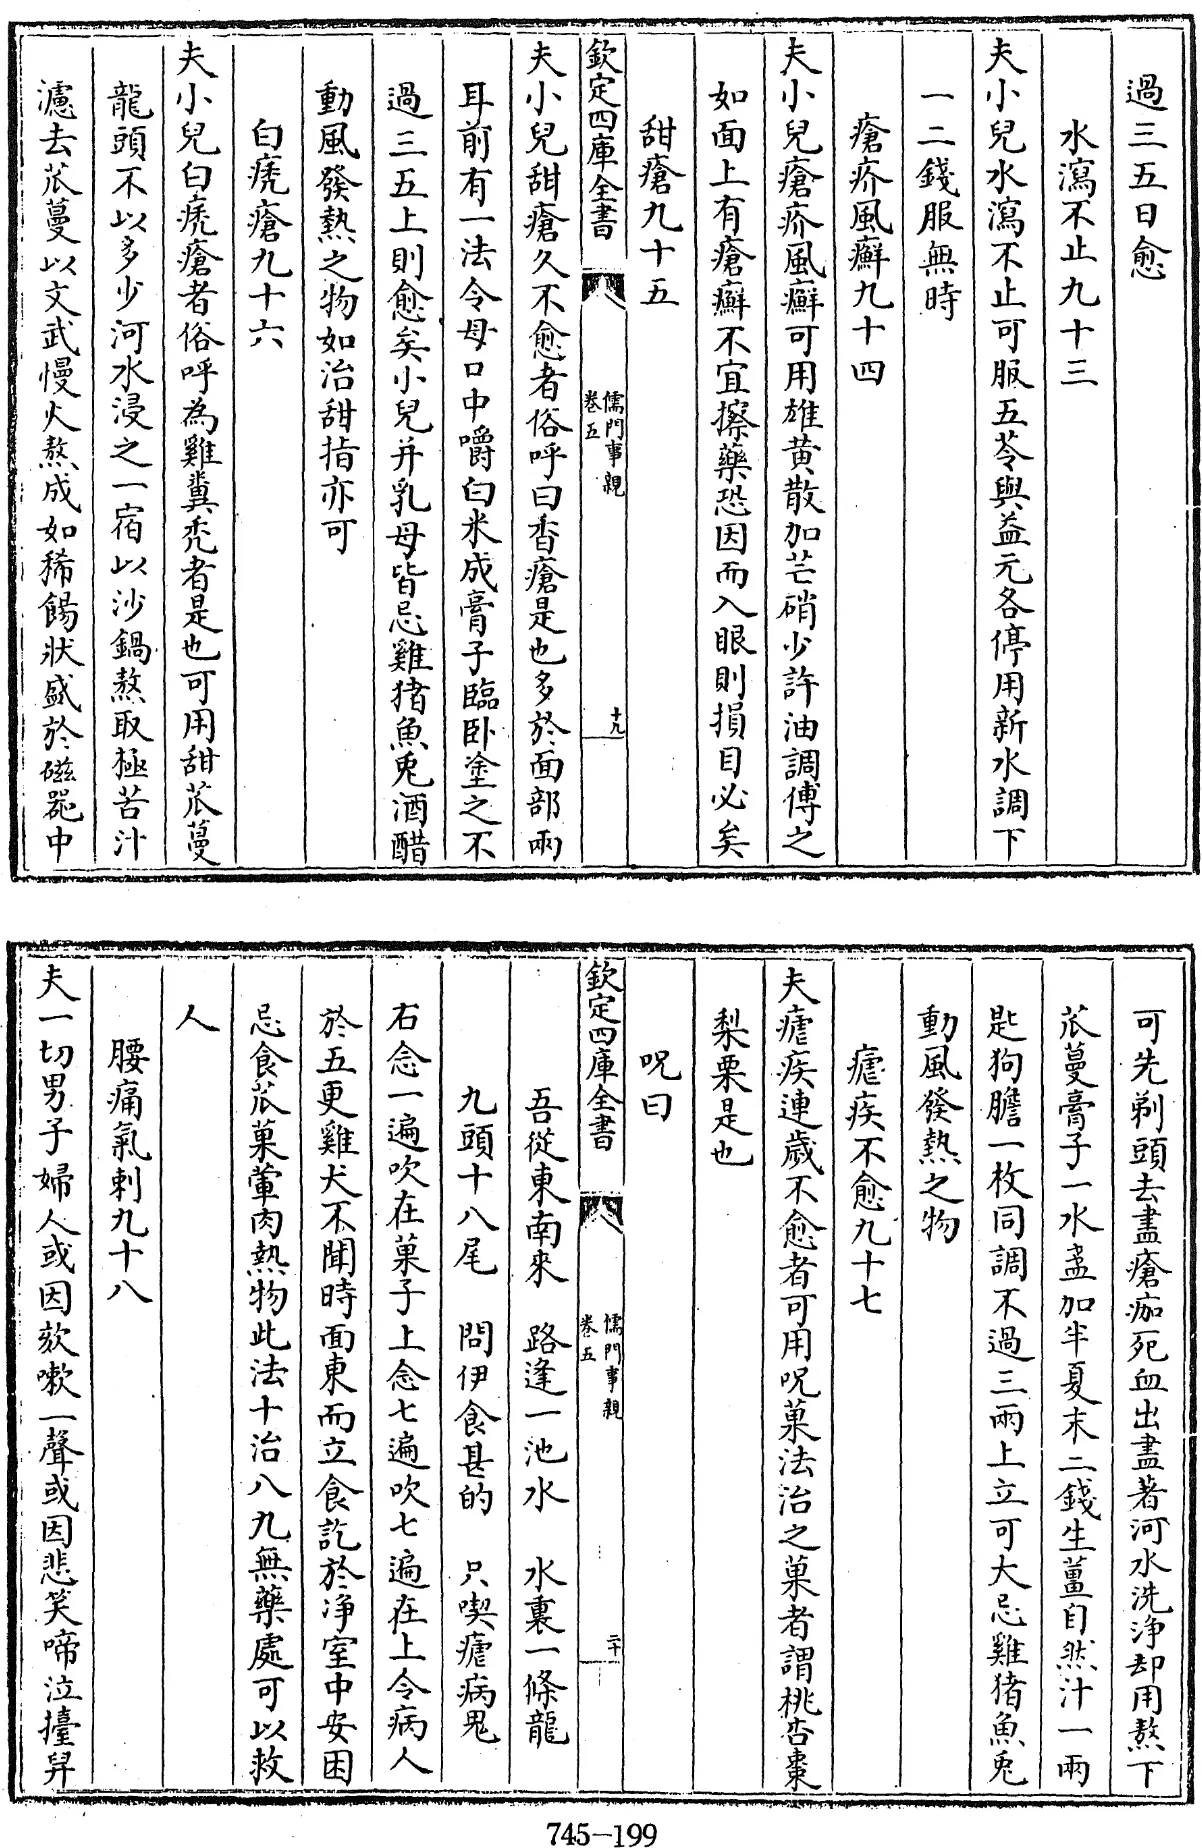 過三五日愈
水瀉不止九十三
夫小兒水瀉不止可服五苓與益元各停用新水調下
一二錢服無時
瘡疥風癬九十四
夫小兒瘡疥風癬可用雄黄散加芒硝少許油調傅之
如面上有瘡癬不宜擦藥恐因而入眼則損目必矣
甜瘡九十五
欽定四庫全書
儒門事親
卷五
十九
夫小兒甜瘡久不愈者俗呼曰香瘡是也多於面部兩
耳前有一法令母口中嚼白米成膏子臨卧塗之不
過三五上則愈矣小兒并乳母皆忌雞猪魚兎酒醋
動風發熱之物如治甜指亦可
白禿瘡九十六
夫小兒白禿瘡者俗呼為雞糞禿者是也可用甜苽蔓
龍頭不以多少河水浸之一宿以沙鍋熬取極苦汁
濾去苽蔓以文武慢火熬成如稀餳狀盛於磁噐中
可先剃頭去盡瘡痂死血出盡著河水洗浄却用熬下
苽蔓膏子一水盞加半夏末二錢生薑自然汁一兩
匙狗膽一枚同調不過三兩上立可大忌雞猪魚兎
動風發熱之物
瘧疾不愈九十七
夫瘧疾連歲不愈者可用呪菓法治之菓者謂桃杏棗
梨栗是也
呪曰
欽定四庫全書
儒門事親
卷五
二十
吾從東南來　路逢一池水　水裏一條龍
九頭十八尾　問伊食甚的　只喫瘧病鬼
右念一遍吹在菓子上念七遍吹七遍在上令病人
於五更雞犬不聞時面東而立食訖於浄室中安困
忌食苽菓葷肉熱物此法十治八九無藥處可以救
人
腰痛氣刺九十八
夫一切男子婦人或因欬嗽一聲或因悲笑啼泣擡舁
745–199